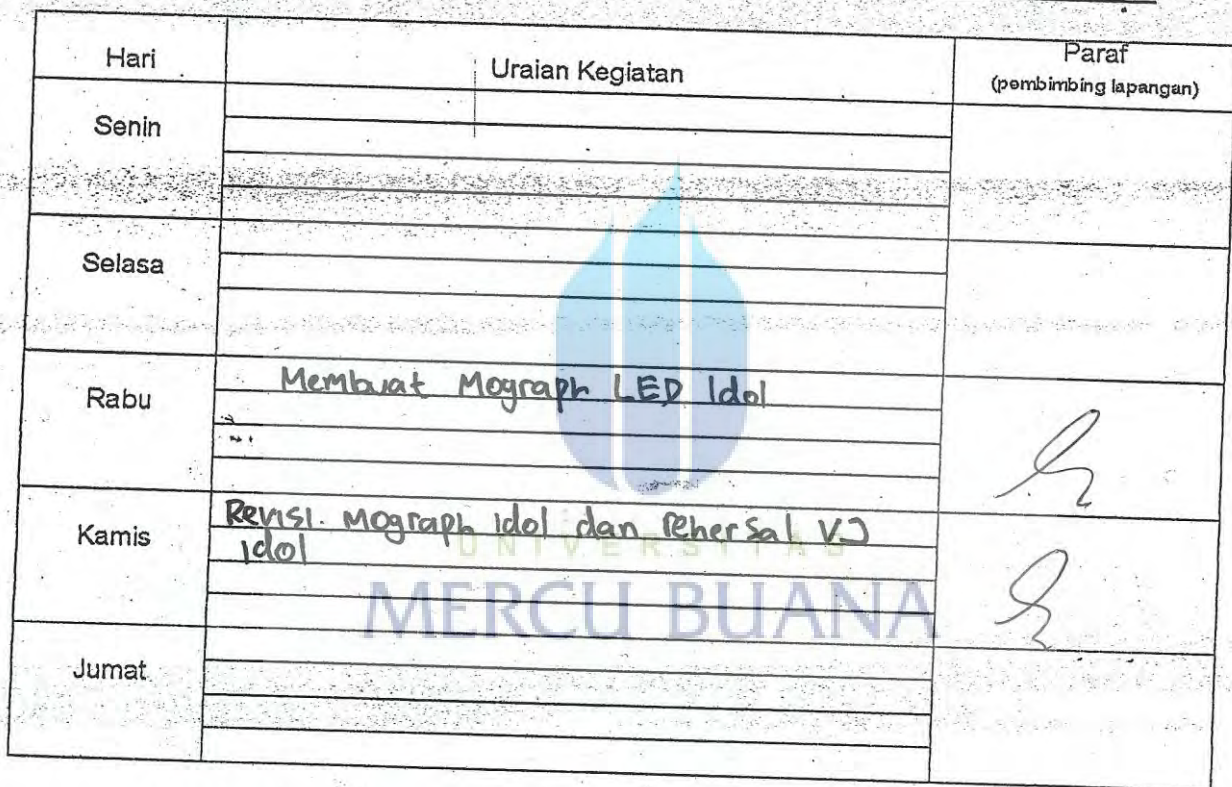 Hari Uraian Kegiatan Paraf
(pembimbing lapangan)
Senin
Selasa
Rabu Membuat Mograph LED Idol
Kamis Revisi. Mograph idol dan rehersal VJ
idol
UNIVERSITAS
MERCU BUANA
Jumat